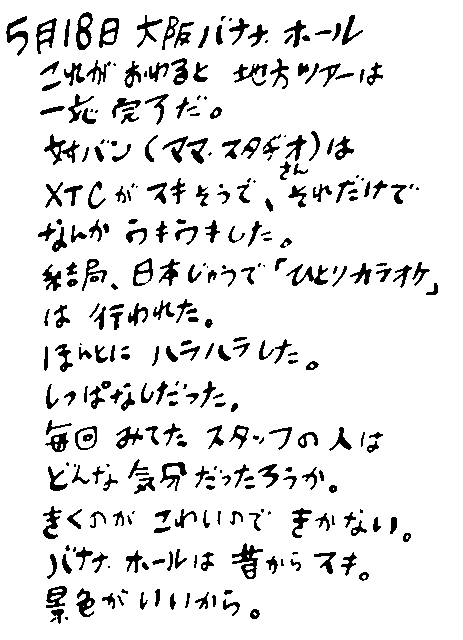 5月18日 大阪バナナホール
これがおわると 地方ツアーは
一応 完了だ。
対バン(ママスタヂオ)は
XTCが スキそうで、それだけで
さん
なんか ウキウキした。
結局、日本じゅうで「ひとりカラオケ」
は 行われた。
ほんとに ハラハラした。
しっぱなしだった。
毎回 みてた スタッフの人は
どんな 気分だったろうか。
きくのが こわいので きかない。
バナナホールは 昔からスキ。
景色がいいから。